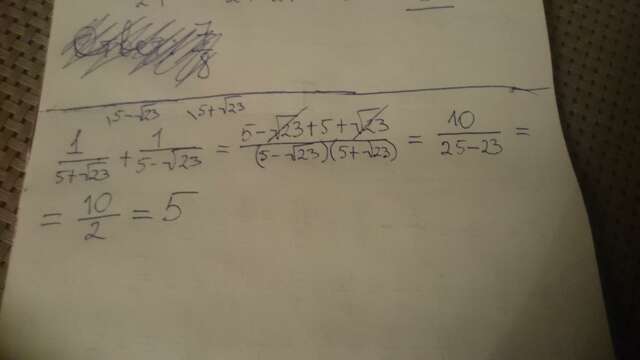 7
8
\5-√23 \5+√23
1/(5+√23) + 1/(5-√23) = (5-√23+5+√23)/((5-√23)(5+√23)) = 10/(25-23) =
= 10/2 = 5